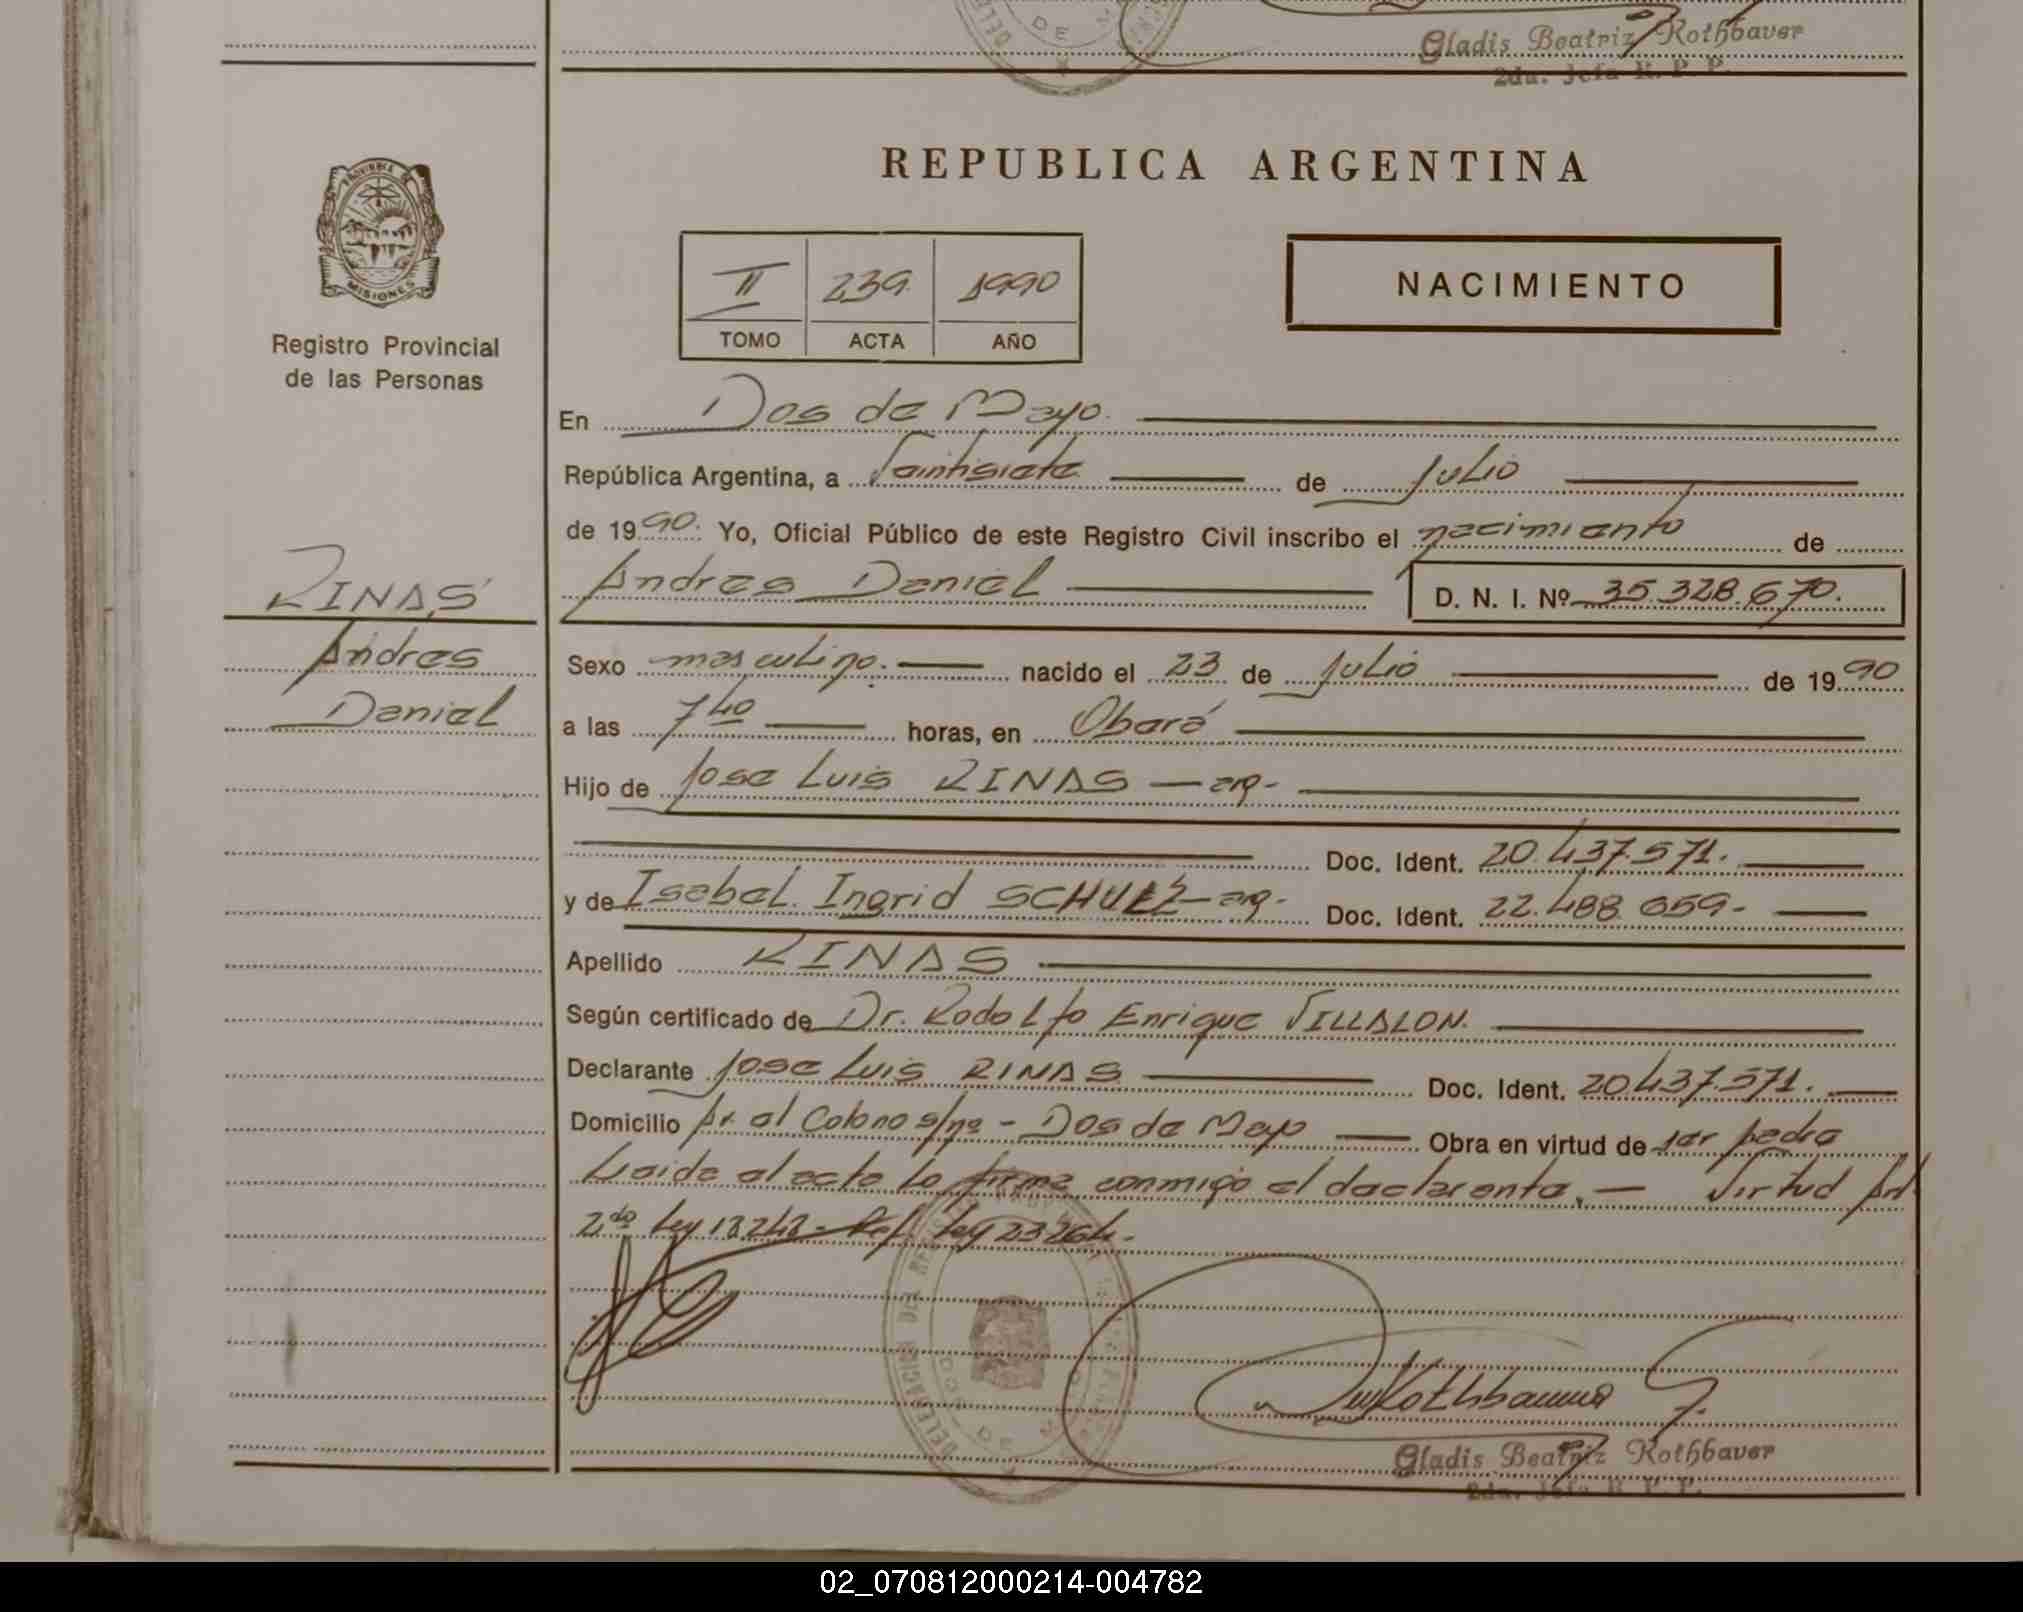 Gladis Beatriz Rothbaver
2da. Jefa R. P. P.
PROVINCIA DE
MISIONES
Registro Provincial
de las Personas
RINAS
Andres
Daniel
REPUBLICA ARGENTINA
II 239 1990
TOMO ACTA AÑO
NACIMIENTO
En Dos de Mayo.
República Argentina, a Veintisiete de Julio
de 1990. Yo, Oficial Público de este Registro Civil inscribo el nacimiento de
Andres Daniel D. N. I. Nº 35.328.670.
Sexo masculino. nacido el 23 de Julio de 1990
a las 7 40 horas, en Oberá
Hijo de Jose Luis RINAS - arg-
Doc. Ident. 20.437.571.
y de Isabel Ingrid SCHULZ - arg- Doc. Ident. 22.488.059-
Apellido RINAS
Según certificado de Dr. Rodolfo Enrique VILLALON.
Declarante Jose Luis RINAS Doc. Ident. 20.437.571.
Domicilio Av. el Colono s/nº - Dos de Mayo Obra en virtud de ser padre
Leida el acta la firma conmigo el declarante. - Virtud Art
2do Ley 18248 - Ref. Ley 23264.
DELEGACION DEL
DOS DE
Rothbauer
Gladis Beatriz Rothbaver
2da. Jefa R. P. P.
02_070812000214-004782